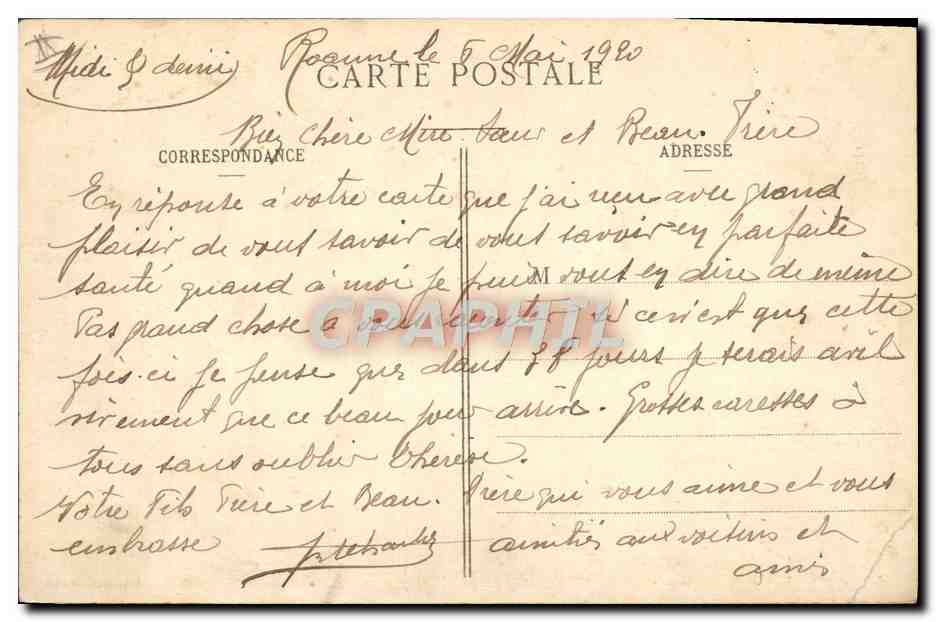 Midi & demi
Roanne le 5 Mai 1920
CARTE POSTALE
Bien Chère Mère Sœur et Beau-Frère
CORRESPONDANCE
ADRESSE
En réponse à votre carte que j'ai reçu avec grand
plaisir de vous savoir de vous savoir en parfaite
santé quand à moi je puis M vous en dire de même
Pas grand chose a vous raconter si ce n'est que cette
fois-ci je pense que dans 38 jours je serais civil
vivement que ce beau jour arrive. Grosses caresses à
tous sans oublier Thérèse.
Votre Fils Frère et Beau-Frère qui vous aime et vous
embrasse
amitiés aux voisins et
amis
CPAPHIL